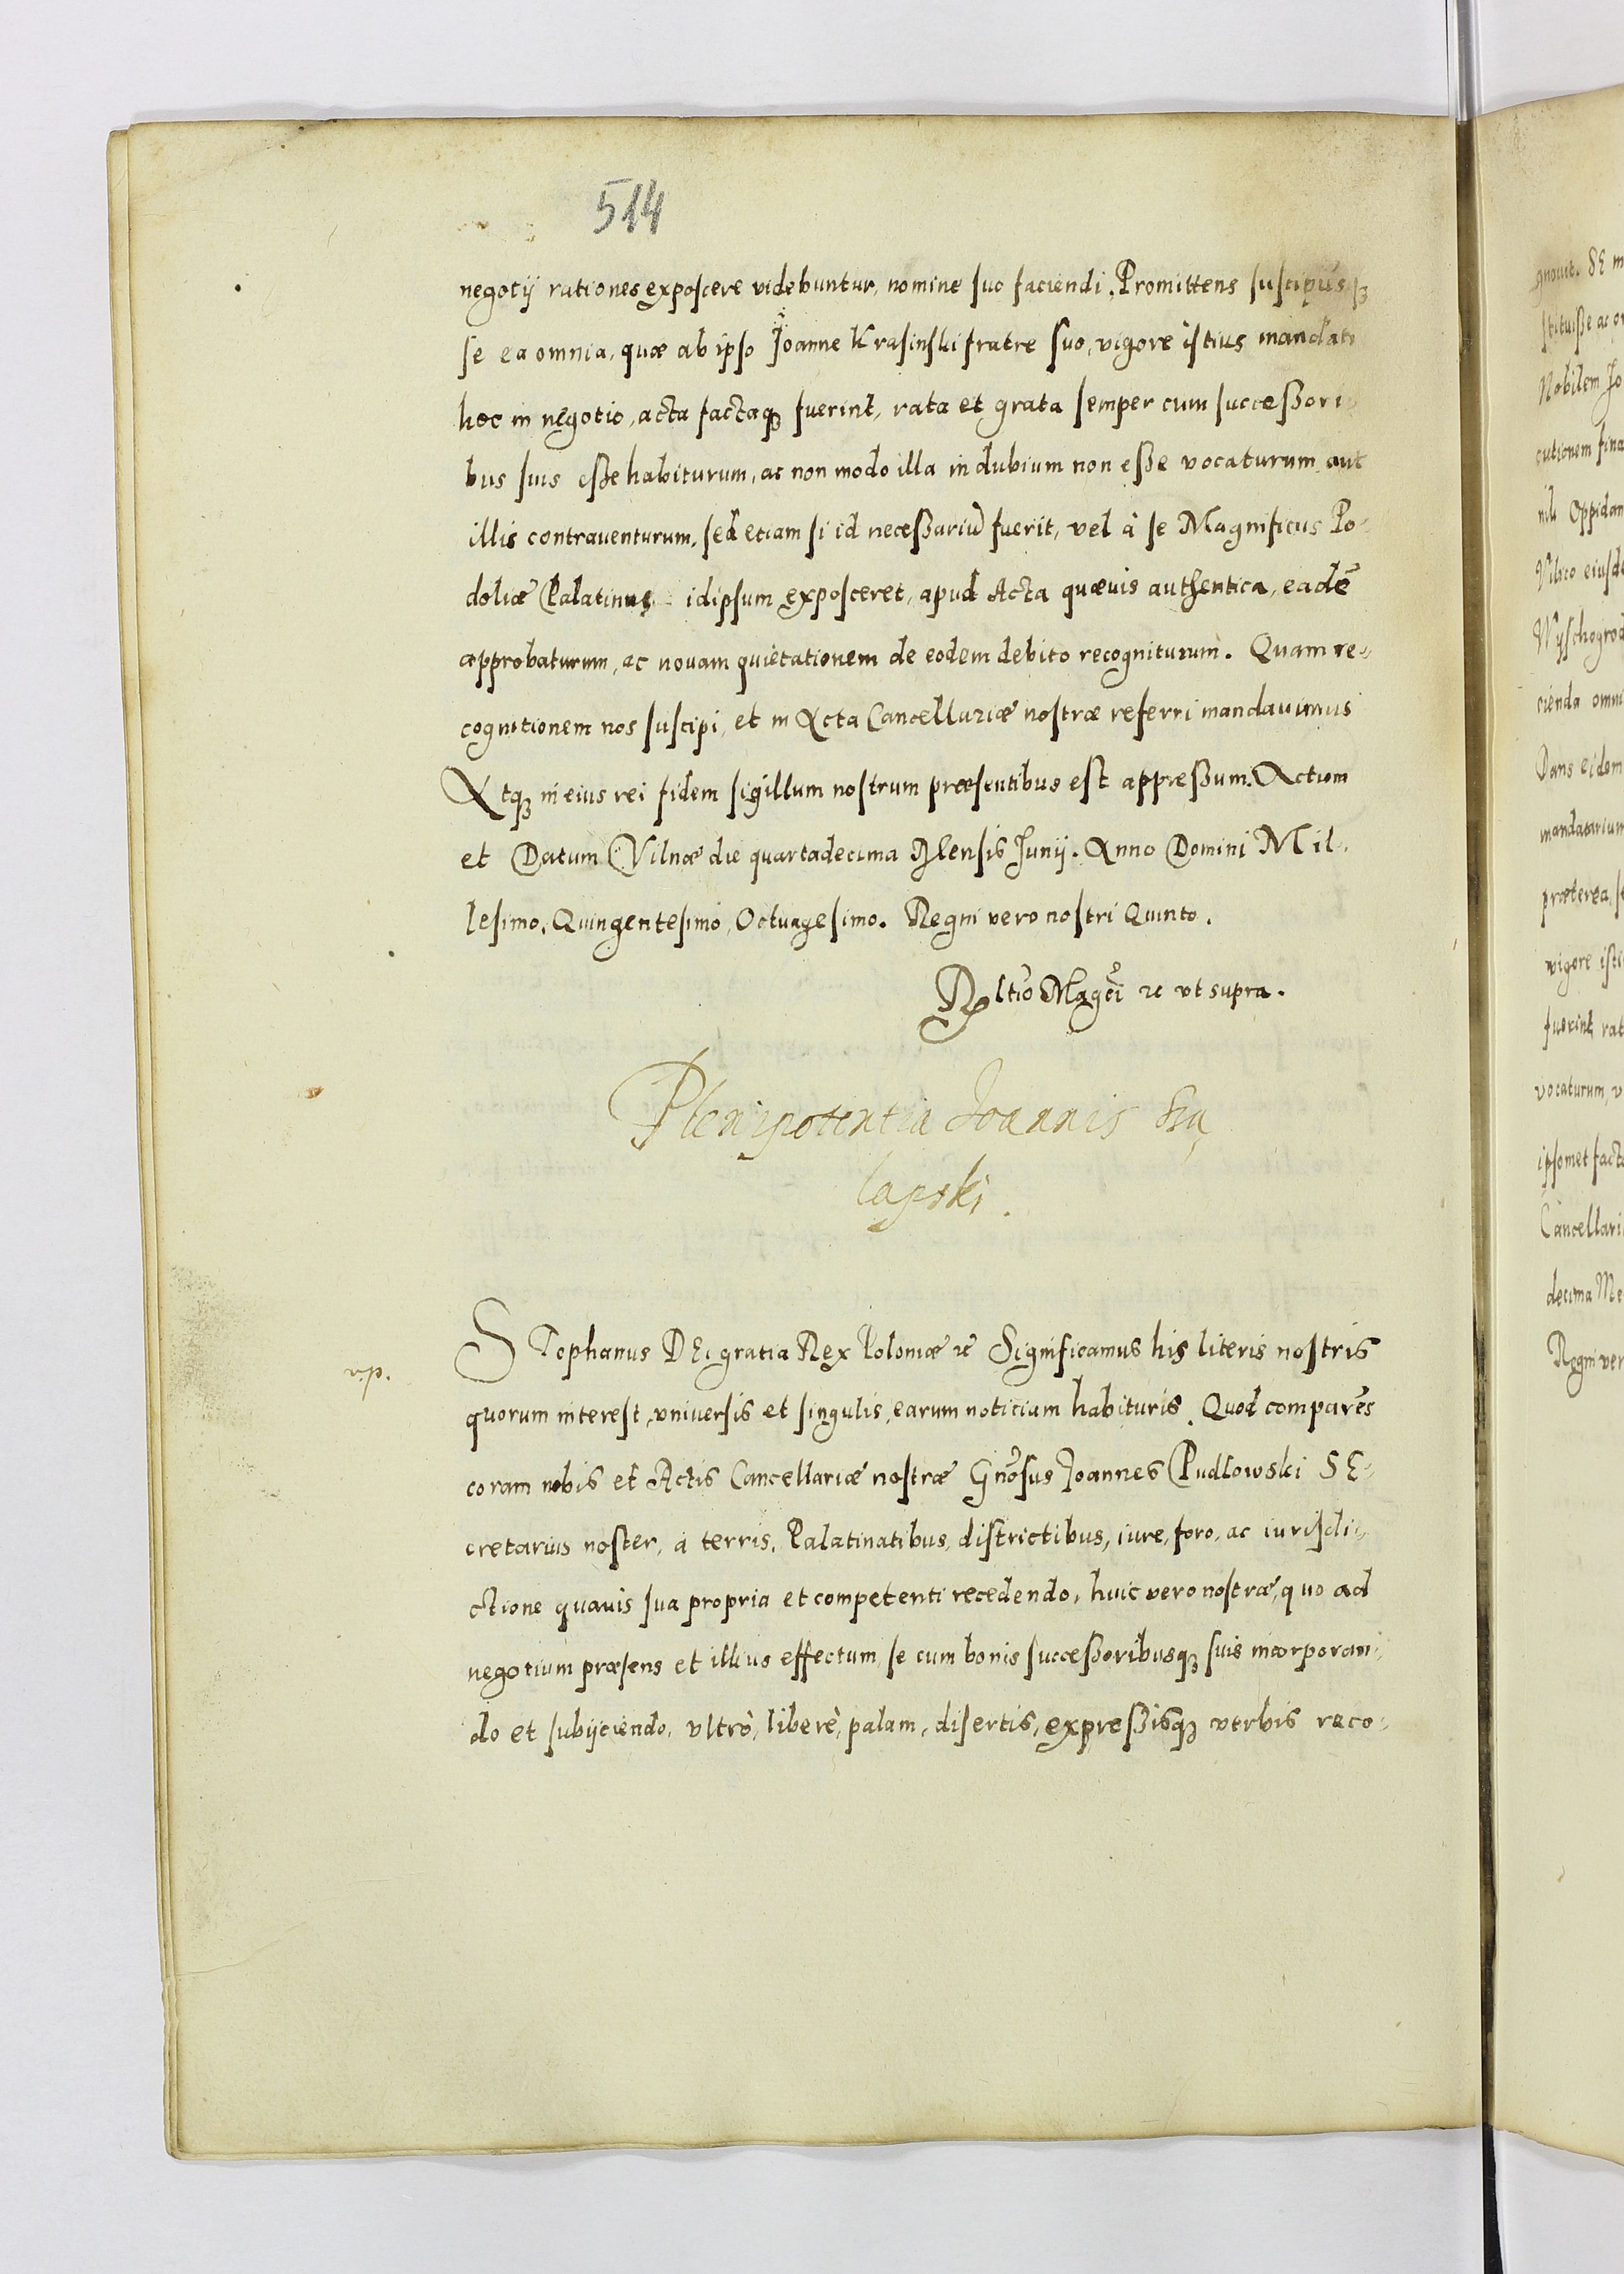 514
negotij rationes exposcere videbuntur, nomine suo faciendi. Promittens suscipiesq
se ea omnia, quæ ab ipso Joanne Krasinski fratre suo, vigore istius mandati
hoc in negotio, acta factaq fuerint, rata et grata semper cum successori
bus suis esse habiturum, ac non modo illa in dubium non esse vocaturum, aut
illis contrauenturum, sed etiam si id necessariū fuerit, vel à se Magnificus Po-
doliæ Palatinus idipsum exposceret, apud Acta quæuis authentica, eadē
approbaturum, ac nouam quietationem de eodem debito recogniturum. Quam re-
cognitionem nos suscipi, et in Acta Cancellariæ nostræ referri mandauimus
Atq in eius rei fidem sigillum nostrum præsentibus est appressum. Actum
et Datum Vilnæ die quartadecima Mensis Junij. Anno Domini Mil-
lesimo, Quingentesimo, Octuagesimo. Regni vero nostri Quinto.
Rltio Magci rc vt supra.
Plenipotentia Joannis
lapski.
STephanus DEi gratia Rex Poloniæ rc Significamus his literis nostris
quorum interest, vniuersis et singulis, earum noticiam habituris. Quod comparēs
coram nobis et Actis Cancellariæ nostræ Gnosus Joannes Pudlowski SE-
cretarius noster, à terris, Palatinatibus, districtibus, iure, foro, ac iurisdi-
ctione quauis sua propria et competenti recedendo, huic vero nostræ, quo ad
negotium præsens et illius effectum, se cum bonis successoribusq suis incorporan-
do et subijciendo, vltrò, liberè, palam, disertis, expressisq verbis reco-
gnouit. SE
stituisse ac
Nobilem
cutionem
Oppidan
eiusd
Wyschogrod
cienda omni
Dans eidem
mandatarium
præterea,
vigore isti
fuerint rat
vocaturum, v
ipsomet facta
Cancellari
decima Me
Regni ver